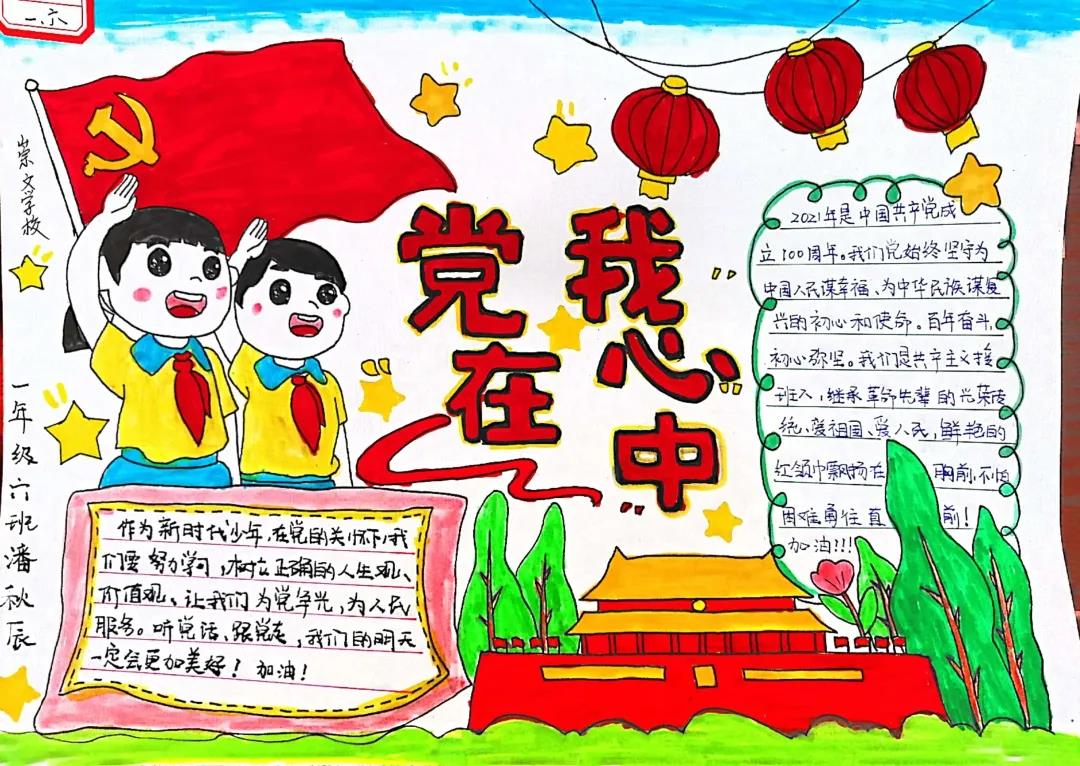 一.六
崇文学校
一年级六班潘秋辰
党在
我心中
2021年是中国共产党成
立100周年。我们党始终坚守为
中国人民谋幸福、为中华民族谋复
兴的初心和使命。百年奋斗,
初心弥坚。我们是共产主义接
班人,继承革命先辈的光荣传
统,爱祖国、爱人民,鲜艳的
红领巾飘扬在胸前,不怕
困难勇往直前!
加油!!!
作为新时代少年,在党的关怀下,我
们要努力学习,树立正确的人生观、
价值观、让我们为党争光,为人民
服务。听党话、跟党走,我们的明天
一定会更加美好!加油!